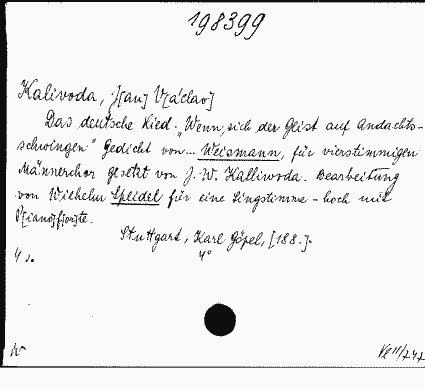 198399
Kalivoda, J[an] V[áclav]
Das deutsche Lied. "Wenn sich der Geist auf Andachts-
schwingen" Gedicht von... Weismann, für vierstimmigen
Männerchor gesetzt von J. W. Kalliwoda. Bearbeitung
von Wilhelm Speidel für eine Singstimme - hoch mit
P[iano]f[or]te.
Stuttgart, Karl Göpel, [188.].
4 s. 4°